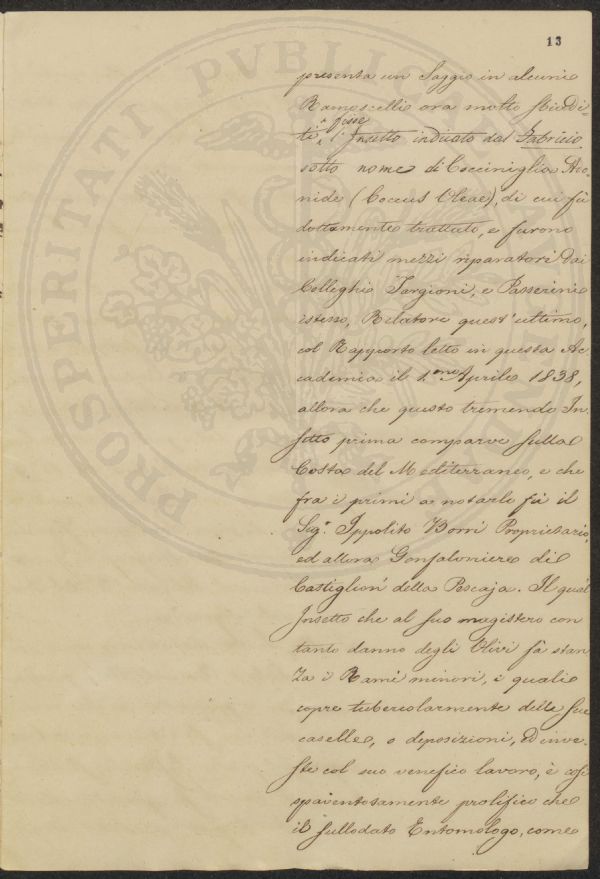 13
presenta un Saggio in alcuni
Ramoscelli ora molto
ti, fosse l'Insetto indicato dal Fabricio
sotto nome di Cocciniglia Ado-
nide (Coccus Oleae), di cui fù
dottamente trattato, e furono
indicati mezzi riparatori dai
Colleghi Targioni, e Passerini
istesso, Relatore quest'ultimo,
col Rapporto letto in questa Ac
cademia il 1.mo Aprile 1838,
allora che questo tremendo In
setto prima comparve sulla
Costa del Mediterraneo, e che
fra i primi a notarlo fù il
Sig.r Ippolito Borri Proprietario,
ed allora Gonfaloniere di
Castiglion' della Pescaja. Il qual
Insetto che al suo magistero con
tanto danno degli Olivi fà stan
za i Rami minori, i quali
copre tubercolarmente delle sue
caselle, o deposizioni, ed inve-
ste col suo venefico lavoro, è così
spaventosamente prolifico che
il sullodato Entomologo, come
PROSPERITATI PVBLICAE